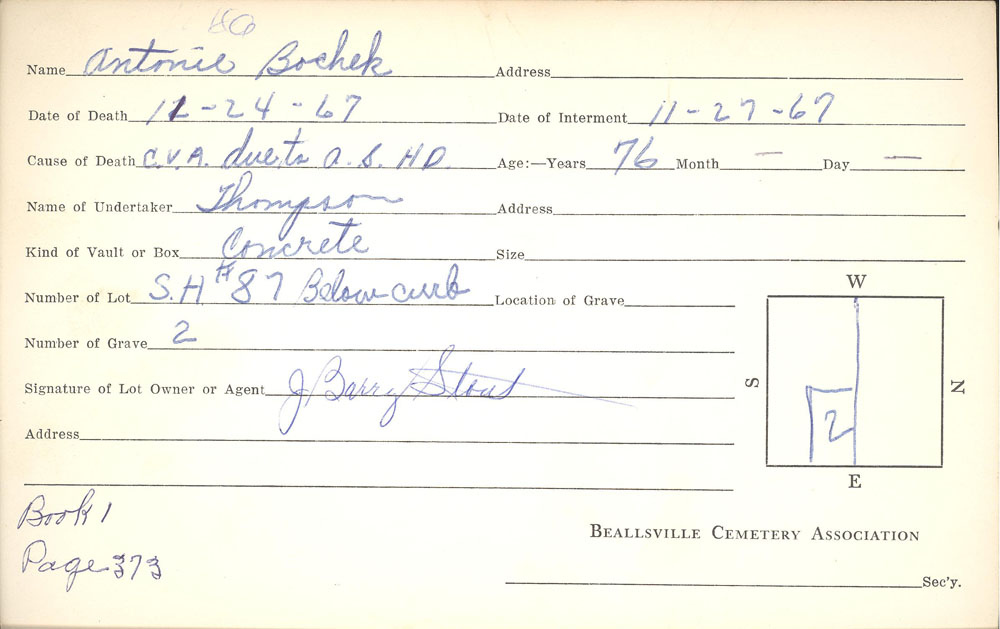 Name Antonie Bochek Address
Date of Death 11-24-67 Date of Interment 11-27-67
Cause of Death C.V.A. due to a. S. H D. Age:—Years 76 Month — Day —
Name of Undertaker Thompson Address
Kind of Vault or Box Concrete Size
Number of Lot S.H #87 Below curb Location of Grave
Number of Grave 2
Signature of Lot Owner or Agent J Barry Stout
Address
W
S
N
2
E
Book 1
Page 373
BEALLSVILLE CEMETERY ASSOCIATION
Sec'y.